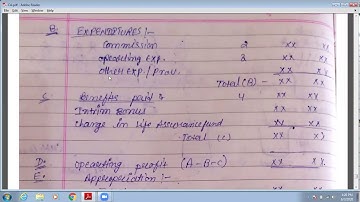 B. EXPENDITURES :-
Commission 2 XX XX
operating Exp. 3 XX XX
other Exp. / Prov. XX XX
Total (B) - XX XX
C. Benefits paid & 4 XX XX
Interim Bonus
Change in Life Assurance fund XX XX
Total (C) XX XX
D. Operating profit (A - B - C) XX XX
E. Appropriation :-